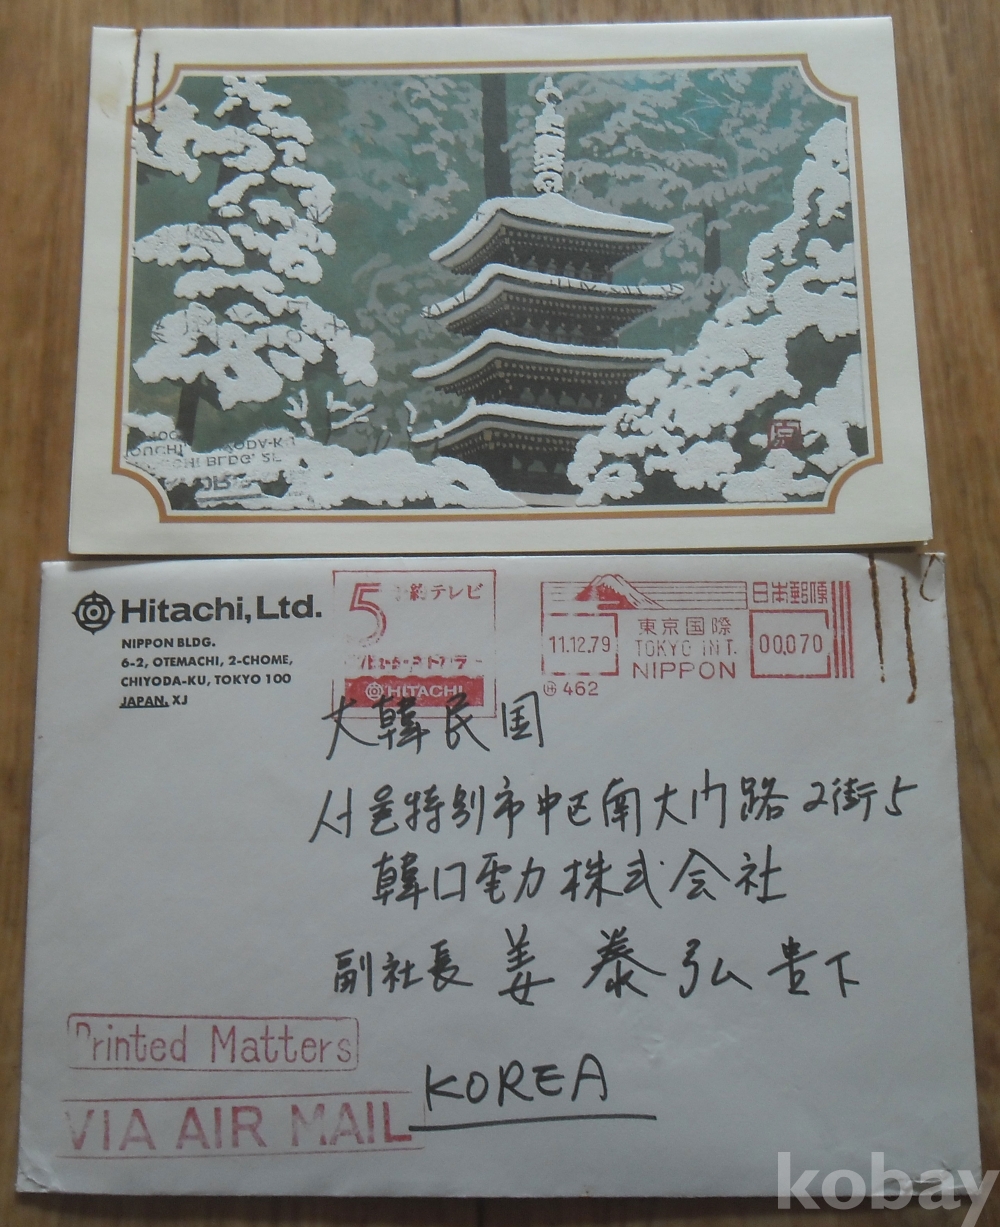 Hitachi, Ltd.
NIPPON BLDG.
6-2, OTEMACHI, 2-CHOME,
CHIYODA-KU, TOKYO 100
JAPAN. XJ
5
テレビ
HITACHI
日本郵便
東京国際
TOKYO INT.
NIPPON
11.12.79
00070
462
大韓民国
서울特別市中区南大门路2街5
韓口電力株式会社
副社長 姜泰弘 貴下
KOREA
Printed Matters
VIA AIR MAIL
kobay